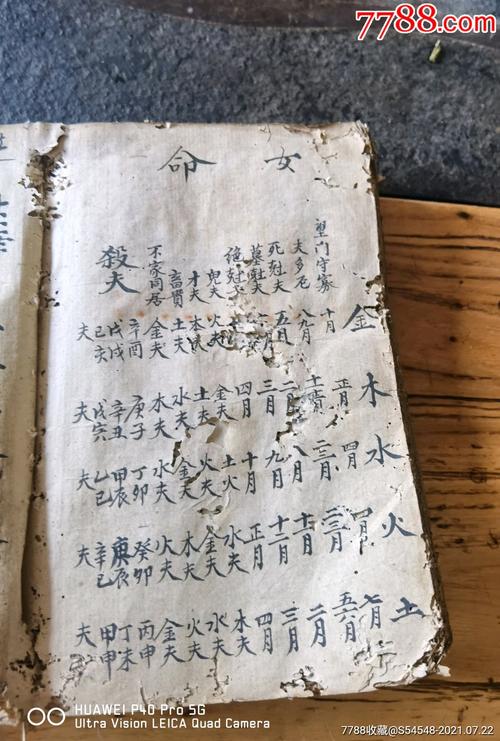 7788.com
女命
金 木 水 火 土
望門守寡 十月 正月 四月 四月 七月
夫多厄 八九月 二三月 五六月
死尅夫 五月 二月 八月 十月 二月
墓尅夫 三月 九月 十二月 三月
絕尅夫 四月 十月 正月 四月
鬼夫 火夫 金夫 土火 水夫 木夫
才夫 木夫 土夫 火夫 金夫 水夫
土夫 水夫 金夫 木夫 火夫
不家同居 金夫 木夫 水夫 火夫 金夫
殺夫
辛酉 庚子 丁卯 癸卯 丙申
戊戌 辛丑 甲辰 庚辰 丁未
己亥 戊寅 乙巳 辛巳 甲申
夫 夫 夫 夫 夫
HUAWEI P40 Pro 5G
Ultra Vision LEICA Quad Camera
7788收藏@S54548-2021.07.22